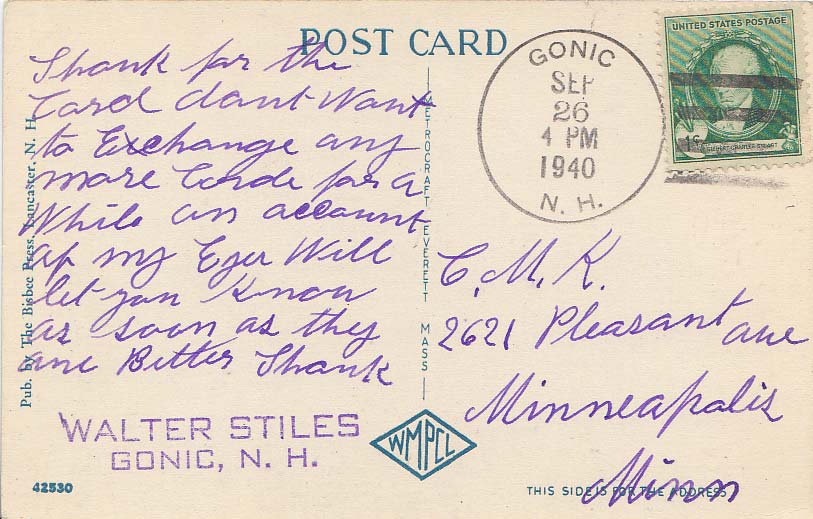 POST CARD
Thank for the
Card dont Want
to Exchange any
more Cards for a
While on account
of my Eyes Will
let you Know
as soon as they
are Better Thank
WALTER STILES
GONIC, N. H.
42530
Pub. by The Bisbee Press, Lancaster, N. H.
METROCRAFT EVERETT MASS
WMPCL
GONIC
SEP
26
4 PM
1940
N. H.
UNITED STATES POSTAGE
1¢
GILBERT CHARLES STUART
C. M. K.
2621 Pleasant ave
Minneapolis
Minn
THIS SIDE IS FOR THE ADDRESS